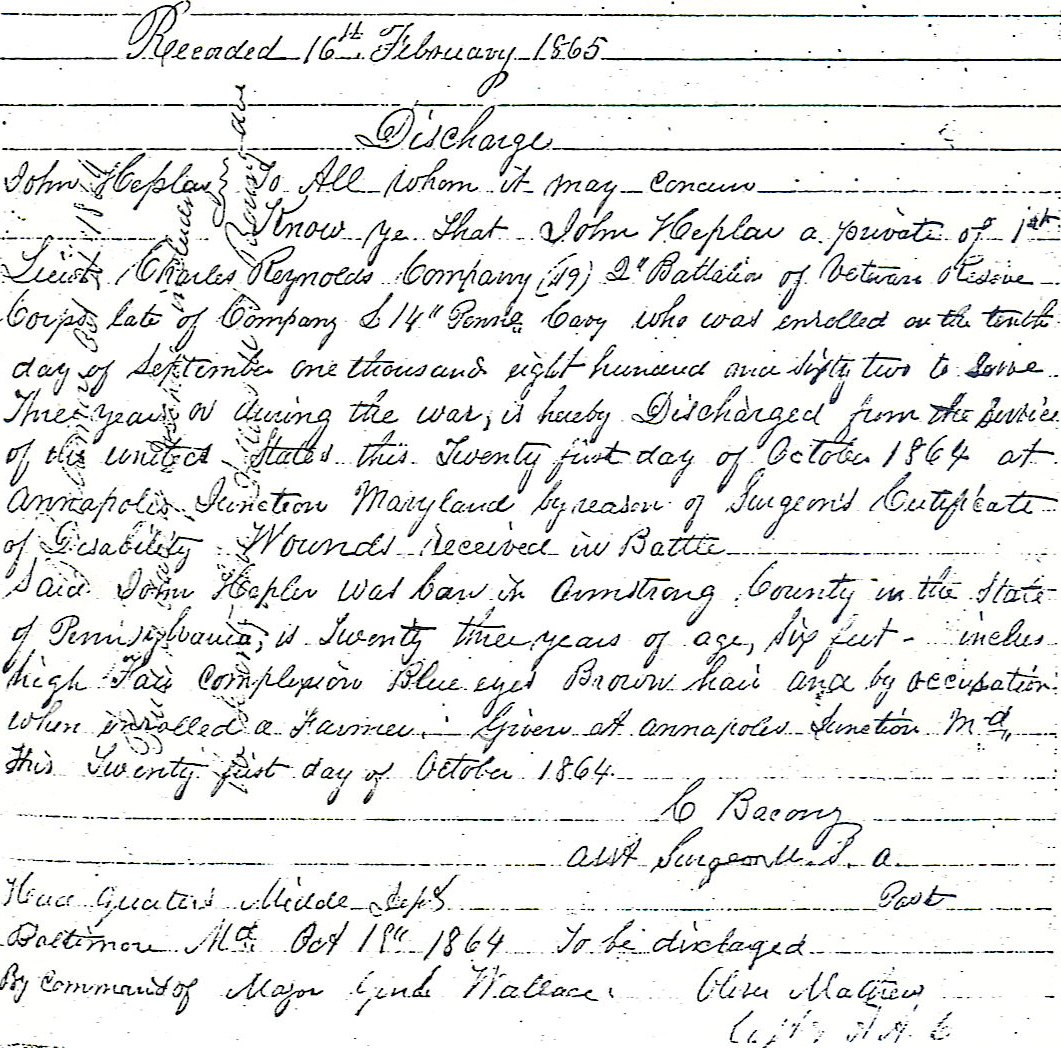 Recorded 16th February 1865
Discharge
John Heplar } To All whom it may concern
Know ye that John Heplar a private of 1st
Lieut Charles Reynolds Company (49) 2" Battalion of Veteran Reserve
Corps late of Company L 14" Penna Cavy who was enrolled on the tenth
day of September one thousand eight hundred and sixty two to serve
Three years or during the war, is hereby Discharged from the service
of the united States this Twenty first day of October 1864 at
Annapolis Junction Maryland by reason of Surgeon's Certificate
of Disability Wounds received in Battle
Said John Hepler was born in Armstrong County in the State
of Pennsylvania, is Twenty three years of age, Six feet - inches
high Fair complexion Blue eyes Brown hair and by occupation
when enrolled a Farmer. Given at Annapolis Junction Md,
this Twenty first day of October 1864
C Bacon
Asst Surgeon U. S. A.
Head Quarters Middle Dept
Post
Baltimore Md Oct 18" 1864 To be discharged
By command of Major Genl Wallace. Oliver Mathew